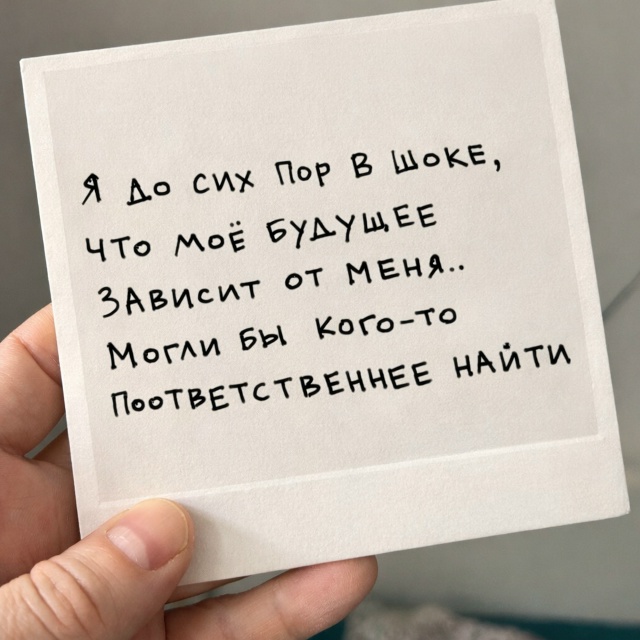 Я до сих пор в шоке,
что моё будущее
зависит от меня..
Могли бы кого-то
поответственнее найти